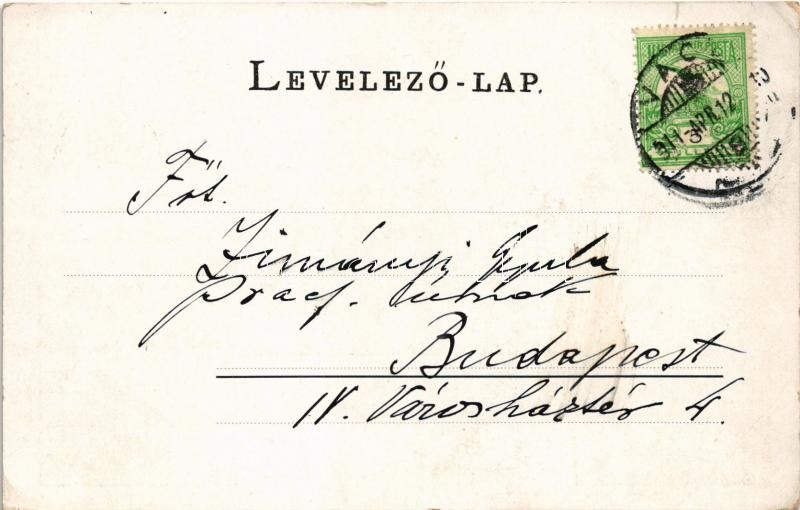 LEVELEZŐ-LAP.
VÁC
911 APR. 12
Főt.
Zimányi Gyula
praef. úrnak
Budapest
IV. Városháztér 4.